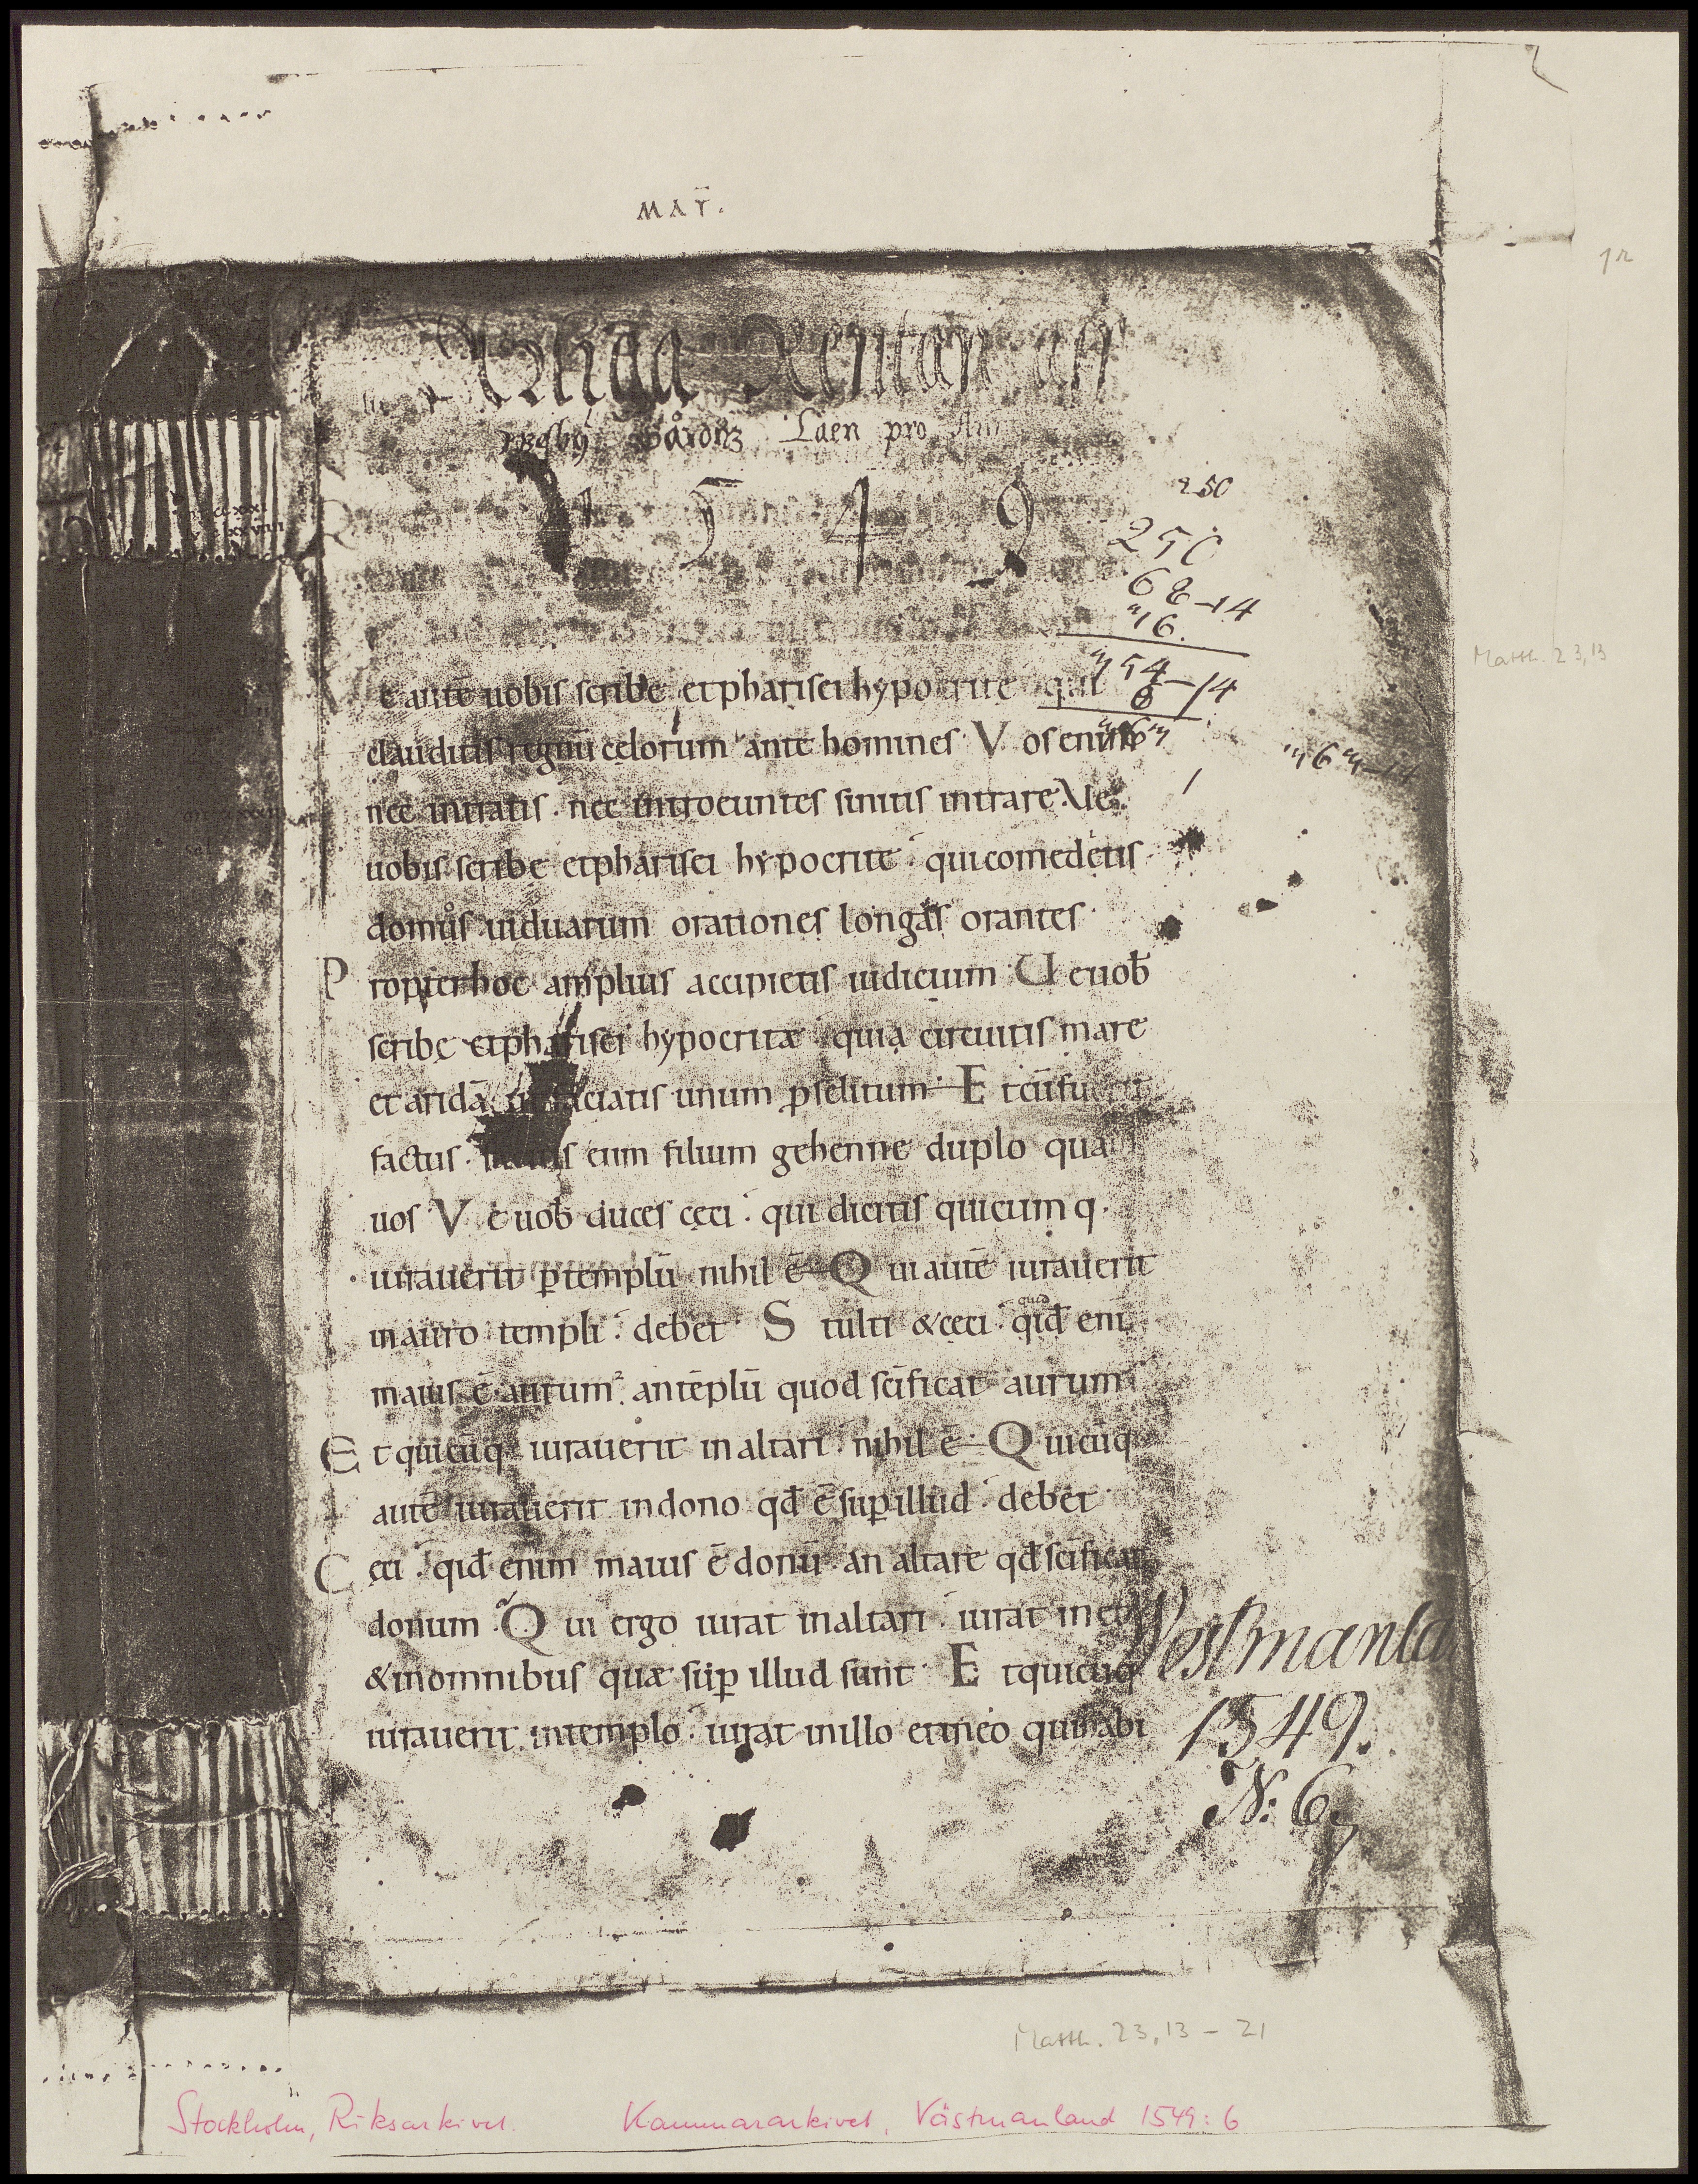 MAT̅.
1r
Laen pro
1 5 4 9
250
250
68-14
"16.
"54-14
8
Matth. 23,13
"6"-14
e autē uobis scribe et pharisei hypocrite qui
clauditis regnū cęlorum ante homines V os enim
nec intratis . nec introeuntes sinitis intrare. Ve
uobis scribe et pharisei hypocrite qui comedetis
domus uiduarum orationes longas orantes
P ropter hoc amplius accipietis iudicium U e uob̄
scribę et pharisei hypocritæ quia circuitis mare
et aridā faciatis unum p̱selitum E t cū fu
factus . eum filium gehenne duplo quā
uos V ę uob̄ duces cęci . qui dicitis quicumq.
iurauerit p̱ templū nihil ē Q ui autē iurauerit
in auro templi . debet S tulti & cęci . qid̄ eni
quid
maius ē aurum . an tēplū quod sc̄ificat aurum
E t quicūq iurauerit in altari . nihil ē Q uicūq
autē iurauerit in dono qd̄ ē sup̱ illud . debet
C ęci . qid̄ enim maius ē donū . an altare qd̄ sc̄ificat
donum . Q ui ergo iurat in altari . iurat in eo
& in omnibus quæ sup̱ illud sunt E t quicūq
iurauerit in templo . iurat in illo et in eo qui habi
Westmanla
1549.
N: 6.
Matth. 23,13 - 21
Stockholm, Riksarkivet. Kammararkivet, Västmanland 1549: 6